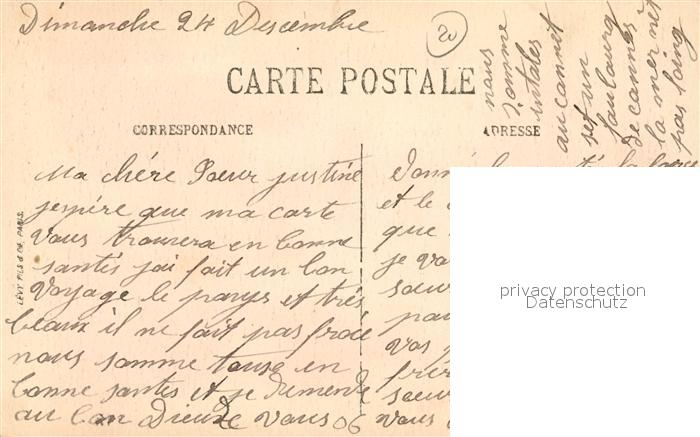 Dimanche 24 Descembre
20
CARTE POSTALE
CORRESPONDANCE
ADRESSE
Ma chére Sœur justine
jespére que ma carte
vous trouvera en bonne
santés jai fait un bon
voyage le parys et trés
beaux il ne fait pas froie
nous somme tous en
bonne santés et je demende
au bon Dieu de vous
06
et le
que
je
sœur
vos
sœur
vous
nous
somme
intales
au cannet
set un
faubourg
de cannes
la mer nét
pas loing
LEVY FILS & Cie, PARIS
privacy protection
Datenschutz